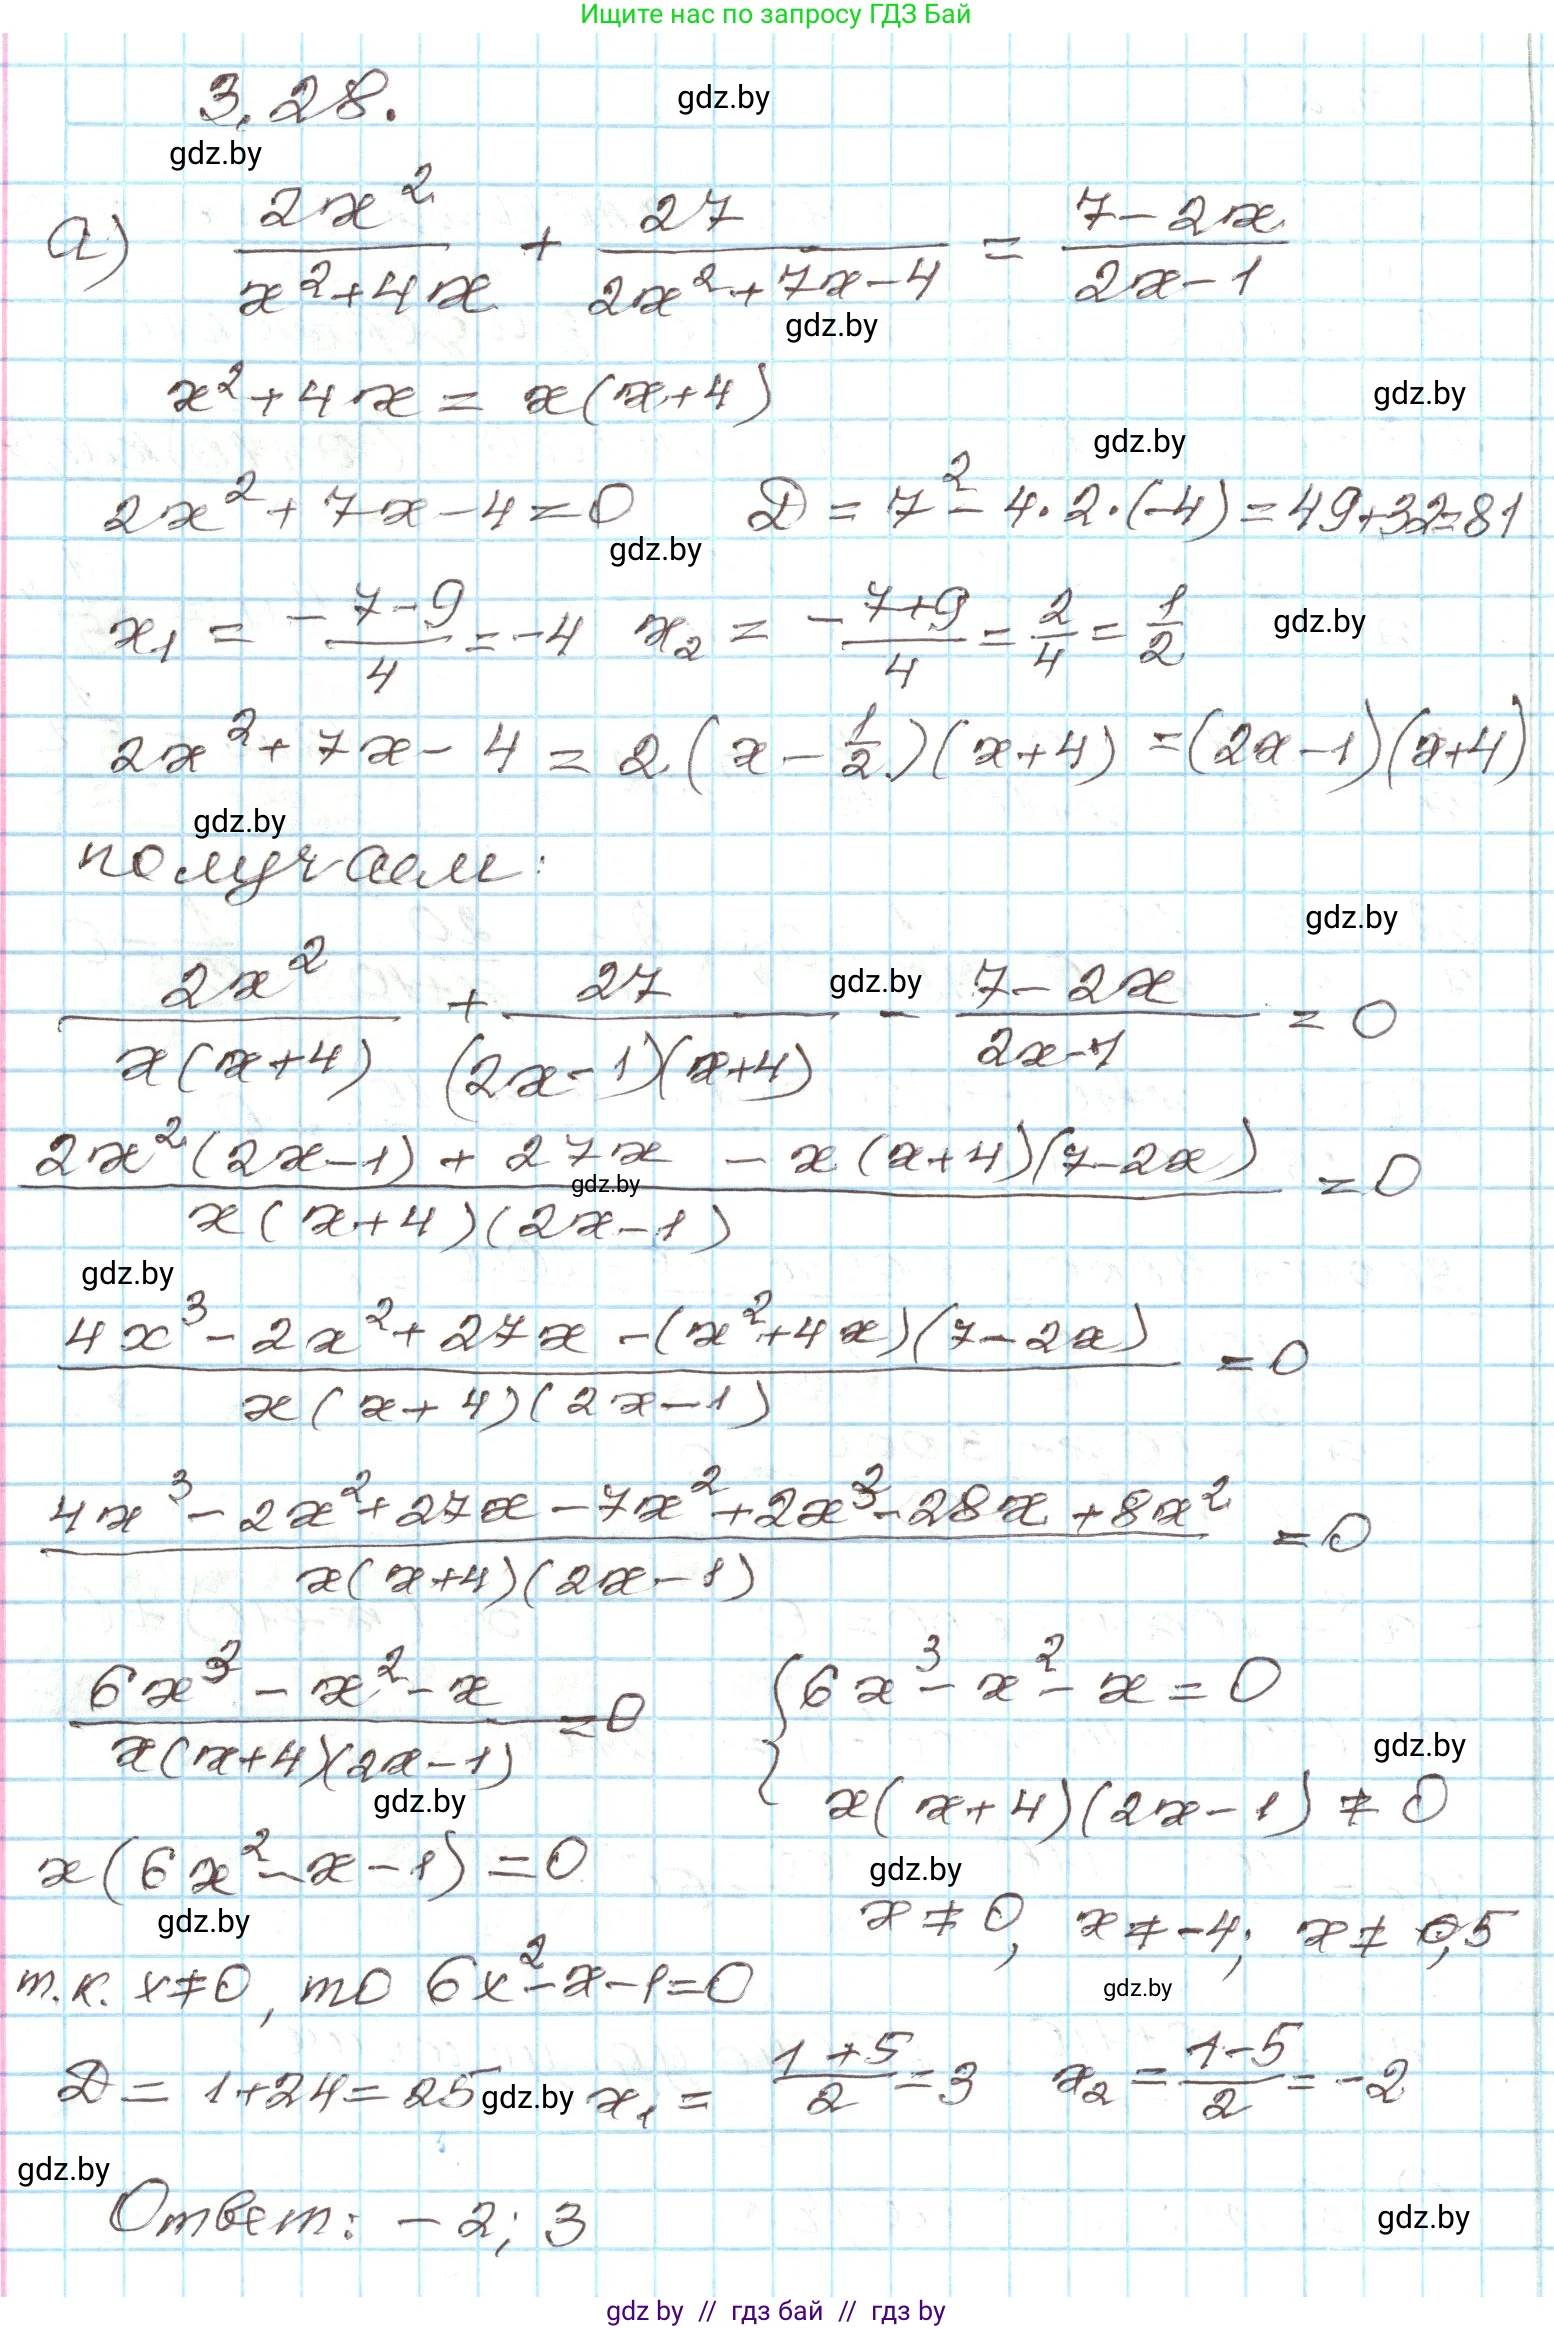 Ищите нас по запросу ГДЗ Бай
3.28.
gdz.by
gdz.by
а) \frac{2x^2}{x^2+4x} + \frac{27}{2x^2+7x-4} = \frac{7-2x}{2x-1}
gdz.by
x^2+4x = x(x+4)
gdz.by
gdz.by
2x^2+7x-4=0 D = 7^2-4·2·(-4)=49+32=81
gdz.by
x_1 = -\frac{7-9}{4} = -4 x_2 = -\frac{7+9}{4} = \frac{2}{4} = \frac{1}{2}
gdz.by
2x^2+7x-4 = 2(x-\frac{1}{2})(x+4) =(2x-1)(x+4)
gdz.by
получаем:
gdz.by
\frac{2x^2}{x(x+4)} + \frac{27}{(2x-1)(x+4)} - \frac{7-2x}{2x-1} = 0
gdz.by
\frac{2x^2(2x-1)+27x-x(x+4)(7-2x)}{x(x+4)(2x-1)} =0
gdz.by
gdz.by
\frac{4x^3-2x^2+27x-(x^2+4x)(7-2x)}{x(x+4)(2x-1)} =0
\frac{4x^3-2x^2+27x-7x^2+2x^3-28x+8x^2}{x(x+4)(2x-1)} =0
\frac{6x^3-x^2-x}{x(x+4)(2x-1)} =0 { 6x^3-x^2-x=0
gdz.by
x(x+4)(2x-1)≠0
gdz.by
x(6x^2-x-1)=0
gdz.by
x≠0, x≠-4; x≠0,5
gdz.by
т.к. x≠0, то 6x^2-x-1=0
gdz.by
D = 1+24=25 x_1 = \frac{1+5}{2} = 3 x_2 = \frac{1-5}{2} = -2
gdz.by
gdz.by
Ответ: -2; 3
gdz.by
gdz by // гдз бай // гдз by